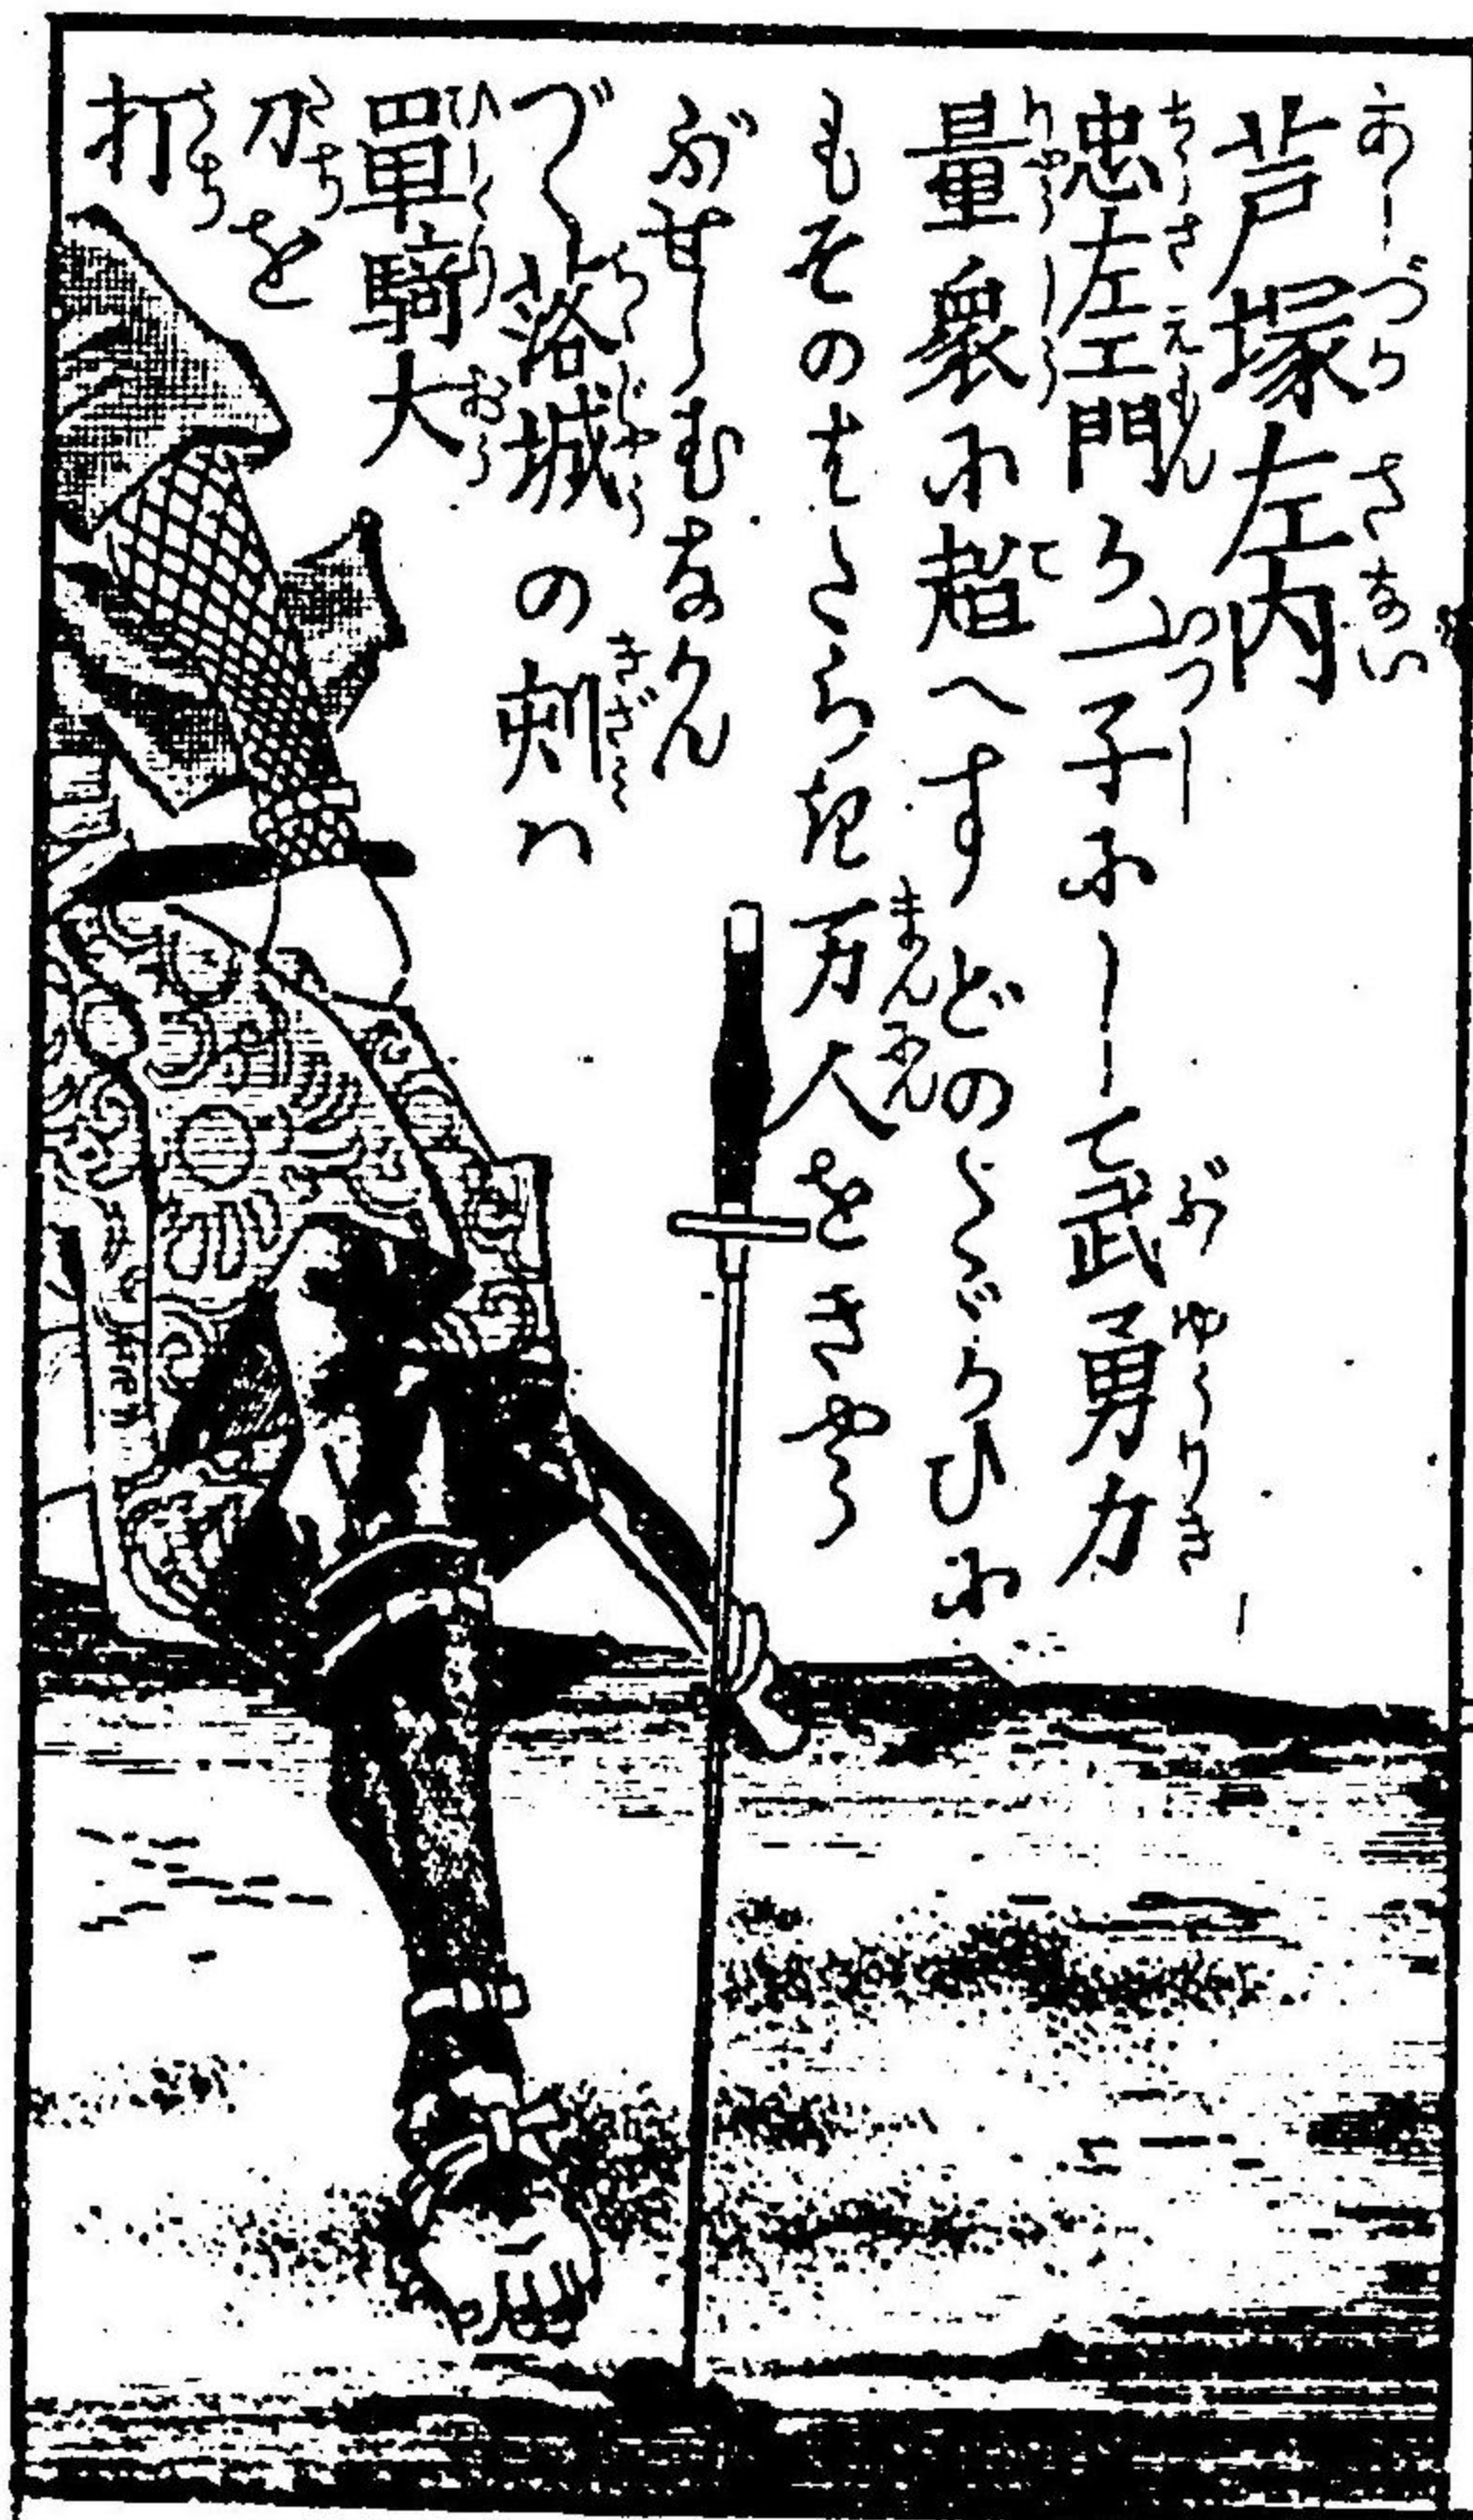 芦塚左内
忠左エ門が一子にして武勇力
量衆に超へすどのくびらひに
もそのはたらき万人をきやう
ぶせしむなりん
づく落城の刻ハ
單騎大
刀を
打